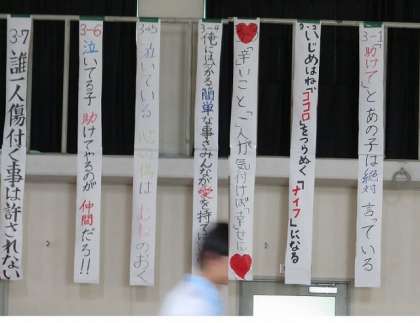 3-1「助けて」とあの子は絶対言っている
いじめはね「ココロ」をつらぬく「ナイフ」になる
「辛いこと」「一人が気付けば」幸せに
3-4 俺にはわかる簡単な事さみんなが愛を持て
泣いている 心の傷は むねのおく
3-6 泣いてる子 助けてやるのが 仲間だろ!!
3-7 誰一人傷付く事は許されない